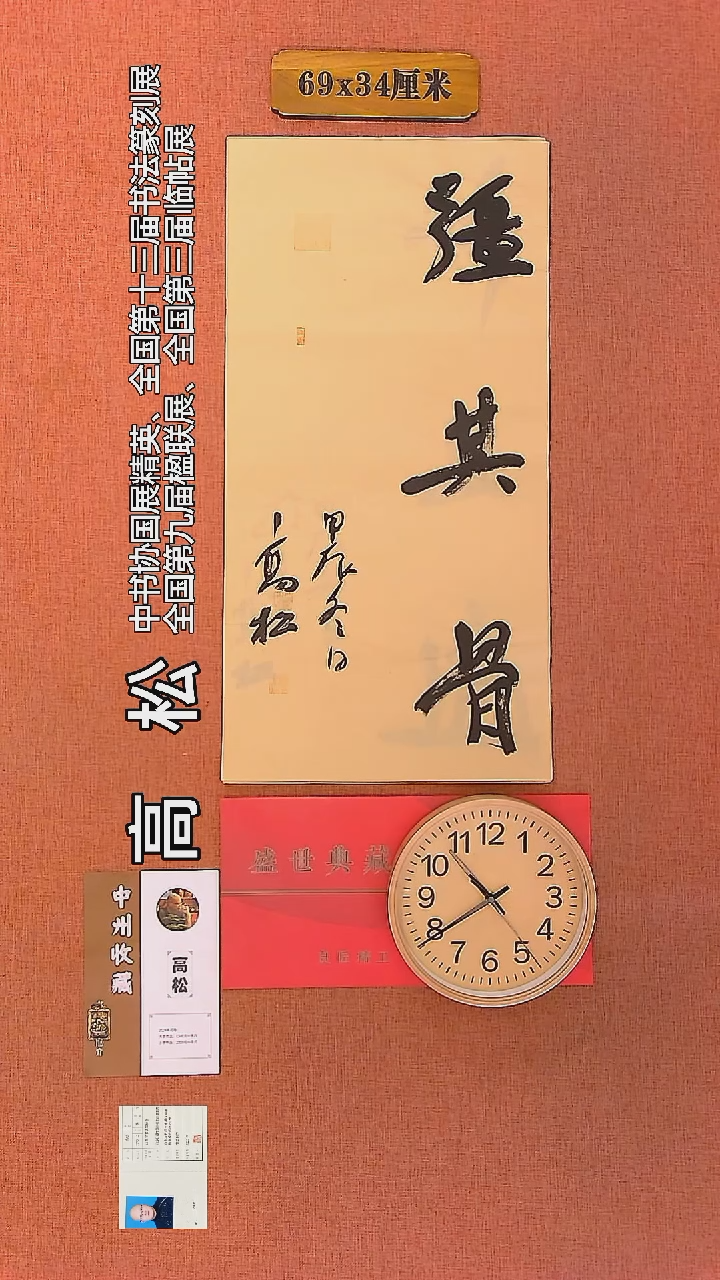 69x34厘米
彊其骨
甲辰冬日
高松
高 松
中书协国展精英、全国第十三届书法篆刻展
全国第九届楹联展、全国第三届临帖展
盛世典藏
中
藏
高松
12
1
2
3
4
5
6
7
8
9
10
11